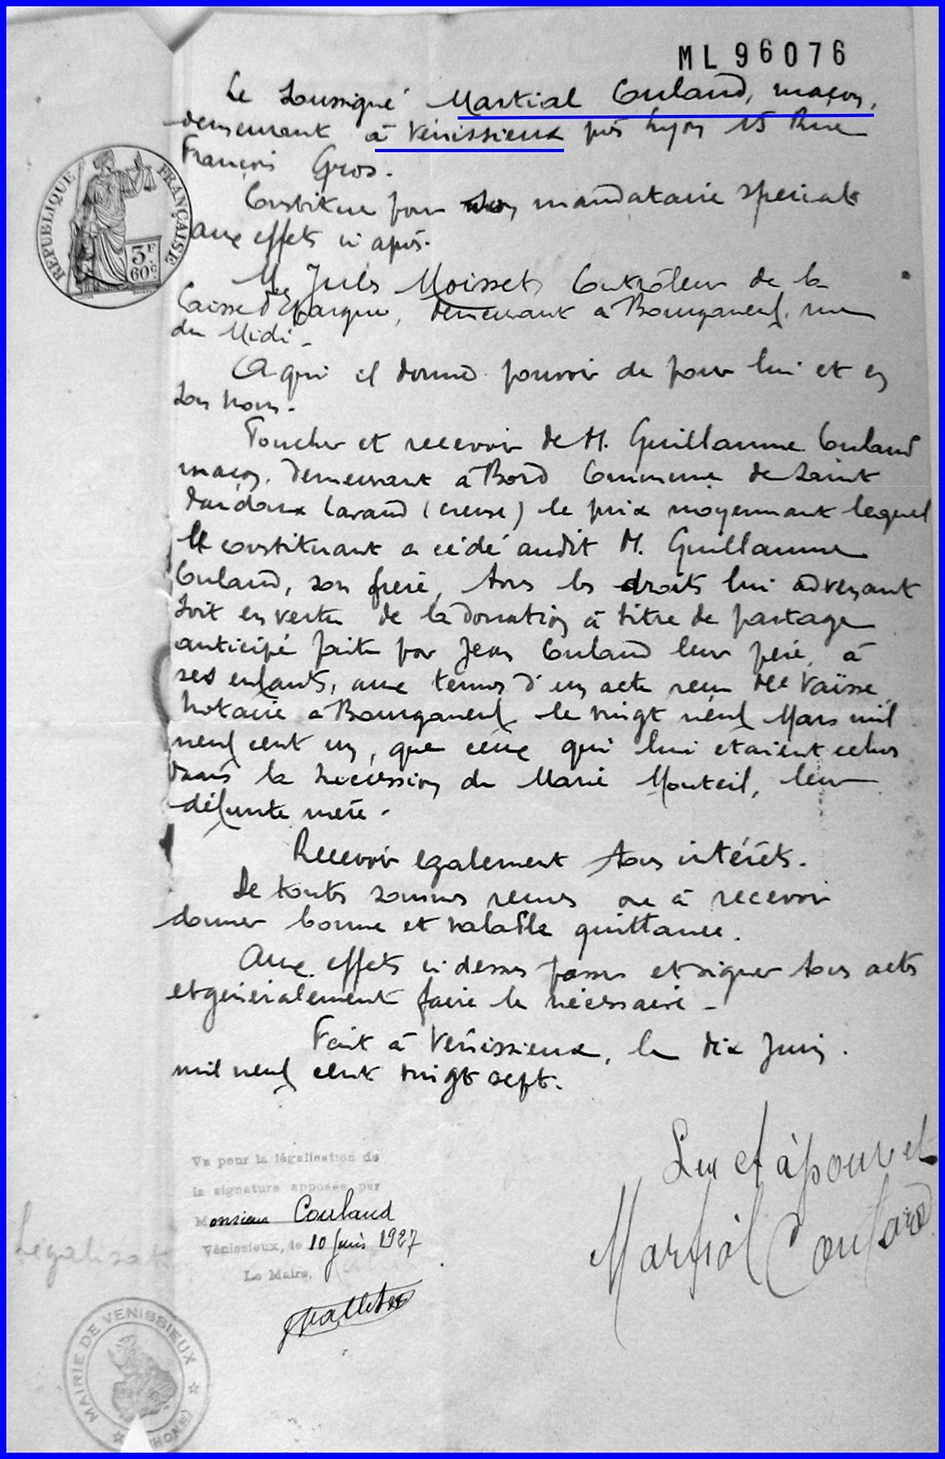 ML 96076
Le Soussigné Martial Couland, maçon,
demeurant à Vénissieux près Lyon 15 Rue
François Gros.
Constitue pour son mandataire spécial
aux effets ci après.
M. Jules Moisset, Contrôleur de la
Caisse d'Epargne, demeurant à Bourganeuf, rue
du Midi.
A qui il donne pouvoir de pour lui et en
son nom.
Toucher et recevoir de M. Guillaume Couland
maçon, demeurant à Bord Commune de Saint
Pardoux Lavaud (Creuse) le prix moyennant lequel
le constituant a cédé audit M. Guillaume
Couland, son frère, tous les droits lui advenant
soit en vertu de la donation à titre de partage
anticipé faite par Jean Couland leur père, à
ses enfants, aux termes d'un acte reçu Me Vaïsse
Notaire à Bourganeuf le vingt neuf Mars mil
neuf cent un, que ceux qui lui etaient échus
dans la succession de Marie Monteil, leur
défunte mère.
Recevoir egalement tous intérêts.
De toutes sommes reçues ou à recevoir
donner bonne et valable quittance.
Aux effets ci dessus passer et signer tous actes
et généralement faire le nécessaire.
Fait à Vénissieux, le dix Juin
mil neuf cent vingt sept.
Lu et àpouvet
Martial Couland
Vu pour la légalisation de
la signature apposée par
Monsieur Couland
Vénissieux, le 10 Juin 1927
Le Maire,
Légalisat
RÉPUBLIQUE FRANÇAISE
3F
60c
MAIRIE DE VENISSIEUX
(RHONE)